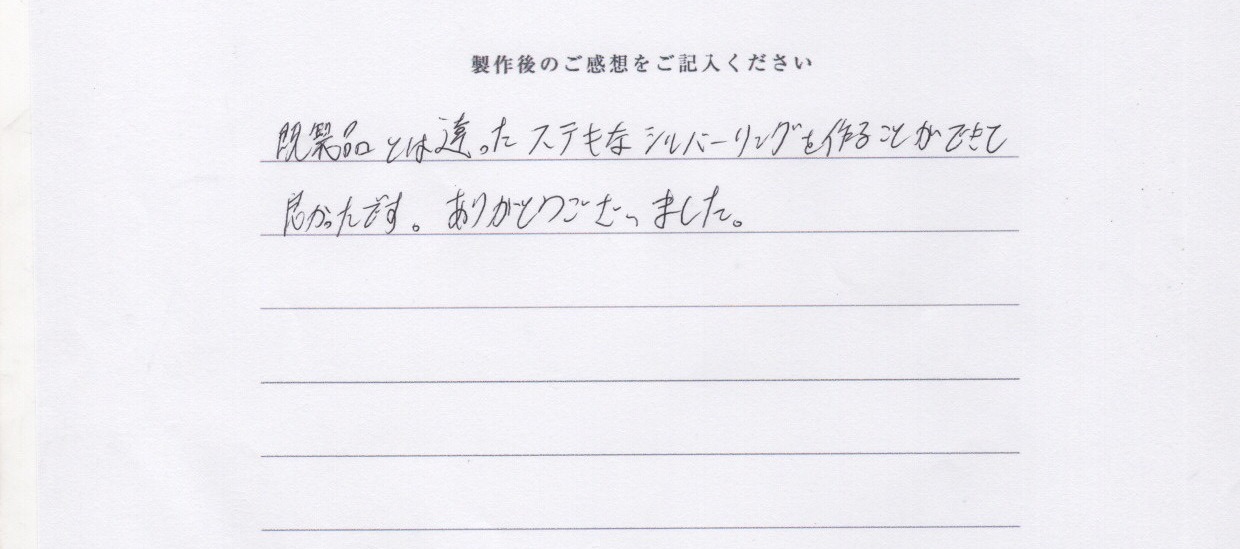 製作後のご感想をご記入ください
既製品とは違ったステキなシルバーリングを作ることができて
良かったです。ありがとうございました。